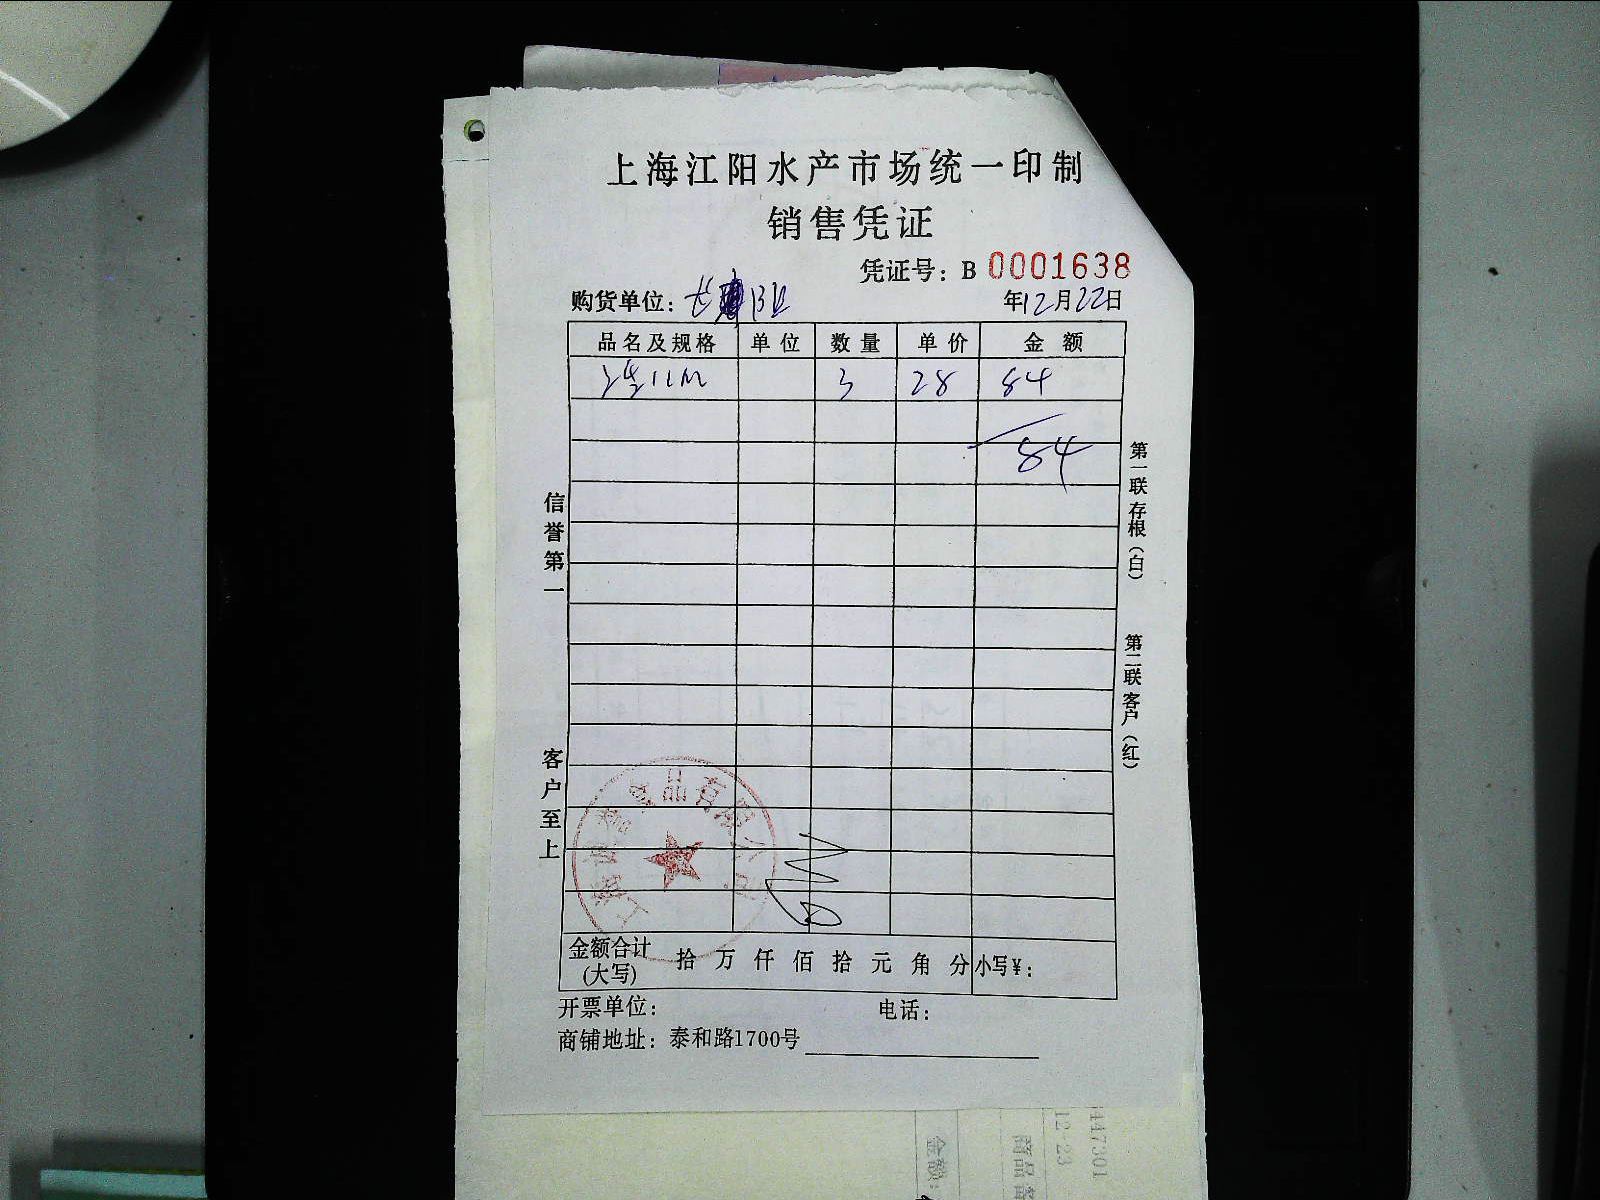 上海江阳水产市场统一印制
销售凭证
凭证号：B 0001638
购货单位：
年12月22日
品名及规格 单位 数量 单价 金额
3 28 84
84
信誉第一
客户至上
第一联存根（白）
第二联客户（红）
金额合计（大写） 拾 万 仟 佰 拾 元 角 分 小写¥：
开票单位： 电话：
商铺地址：泰和路1700号
447301
12-23
商品
金额：